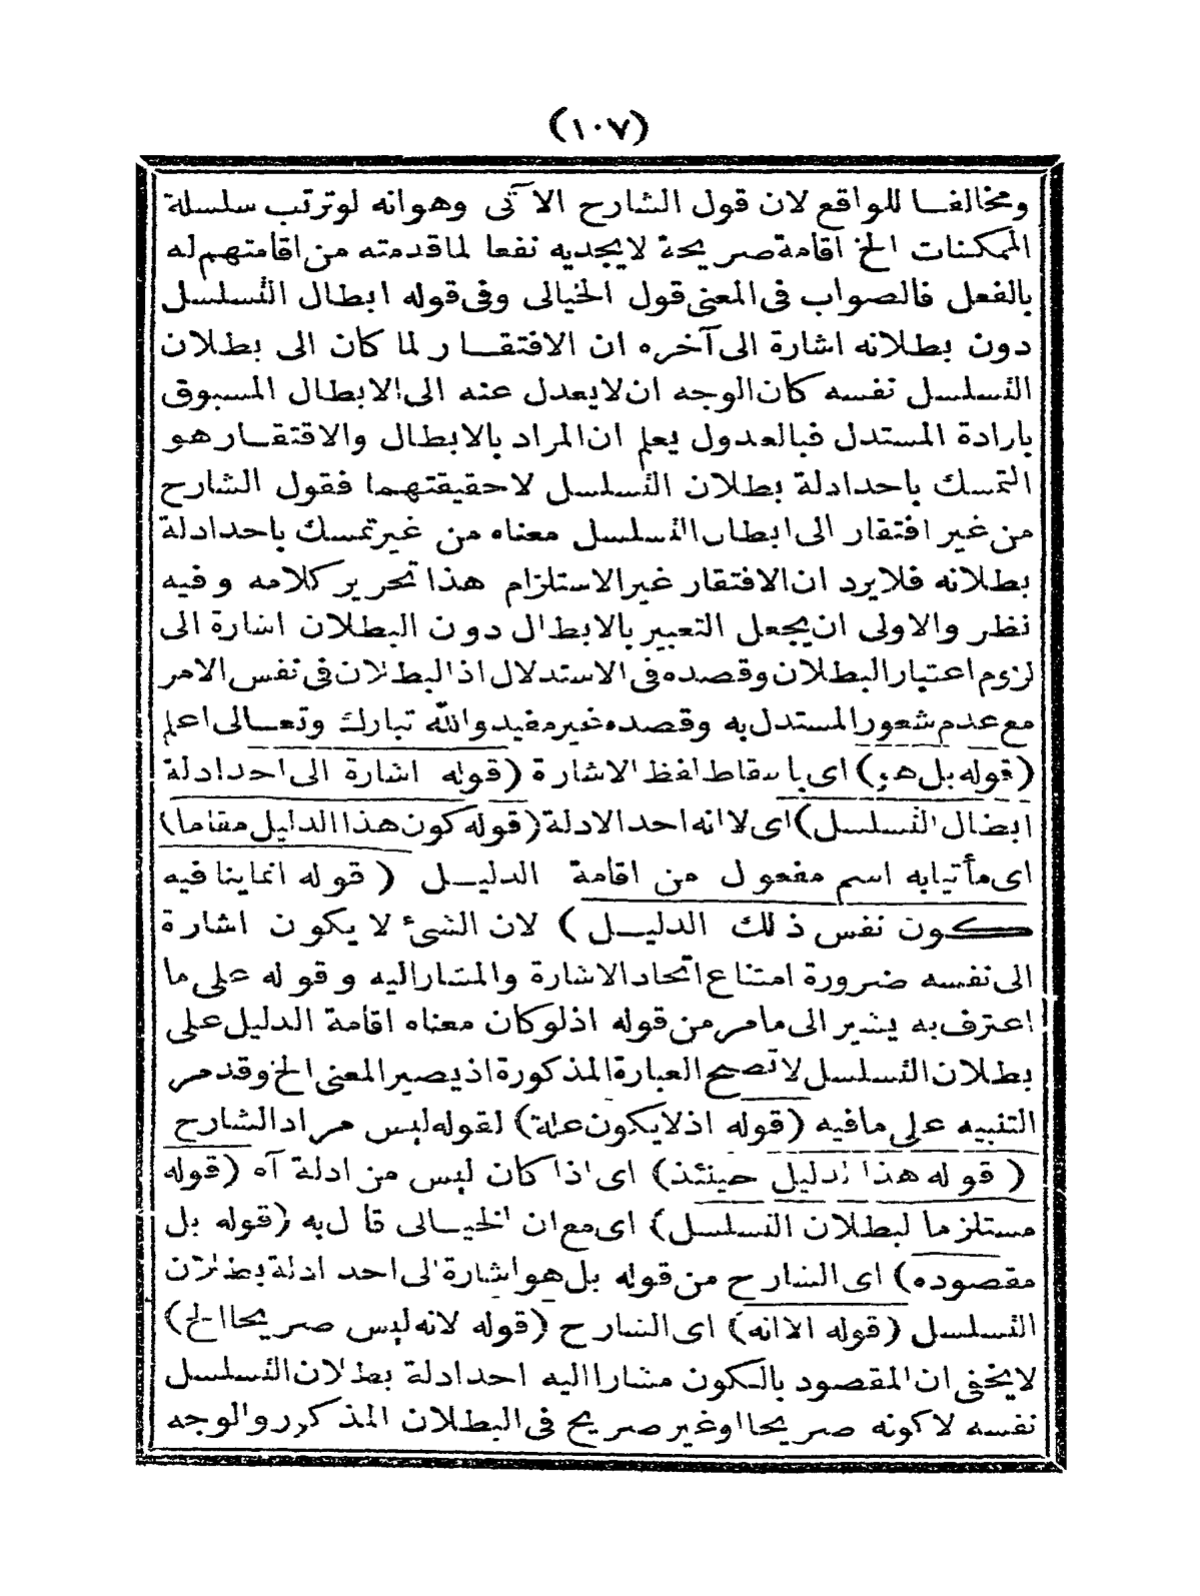 (١٠٧)
ومخالفا للواقع لان قول الشارح الآتى وهوانه لوترتب سلسلة
الممكنات الخ اقامة صريحة لايجديه نفعا لماقدمته من اقامتهم له
بالفعل فالصواب فى المعنى قول الخيالى وفى قوله ابطال التسلسل
دون بطلانه اشارة الى آخره ان الافتقار لما كان الى بطلان
التسلسل نفسه كان الوجه ان لايعدل عنه الى الابطال المسبوق
بارادة المستدل فبالعدول يعلم ان المراد بالابطال والافتقار هو
التمسك باحد ادلة بطلان التسلسل لاحقيقتهما فقول الشارح
من غير افتقار الى ابطال التسلسل معناه من غير تمسك باحد ادلة
بطلانه فلايرد ان الافتقار غير الاستلزام هذا تحرير كلامه وفيه
نظر والاولى ان يجعل التعبير بالابطال دون البطلان اشارة الى
لزوم اعتبار البطلان وقصده فى الاستدلال اذ البطلان فى نفس الامر
مع عدم شعور المستدل به وقصده غير مفيد والله تبارك وتعالى اعلم
(قوله بل هو) اى باسقاط لفظ الاشارة (قوله اشارة الى احد ادلة
ابطال التسلسل) اى لا انه احد الادلة (قوله كون هذا الدليل مقاما)
اى مأتيا به اسم مفعول من اقامة الدليل (قوله انما ينا فيه
كون نفس ذلك الدليل) لان الشئ لا يكون اشارة
الى نفسه ضرورة امتناع اتحاد الاشارة والمشار اليه وقوله على ما
اعترف به يشير الى مامر من قوله اذ لوكان معناه اقامة الدليل على
بطلان التسلسل لا تصح العبارة المذكورة اذ يصير المعنى الخ وقد مر
التنبيه على مافيه (قوله اذ لايكون علة) لقوله ليس مراد الشارح
(قوله هذا الدليل حينئذ) اى اذا كان ليس من ادلة آه (قوله
مستلزما لبطلان التسلسل) اى مع ان الخيالى قال به (قوله بل
مقصوده) اى الشارح من قوله بل هو اشارة الى احد ادلة بطلان
التسلسل (قوله الا انه) اى الشارح (قوله لانه ليس صريحا الخ)
لايخفى ان المقصود بالكون مشارا اليه احد ادلة بطلان التسلسل
نفسه لا كونه صريحا اوغير صريح فى البطلان المذكور والوجه